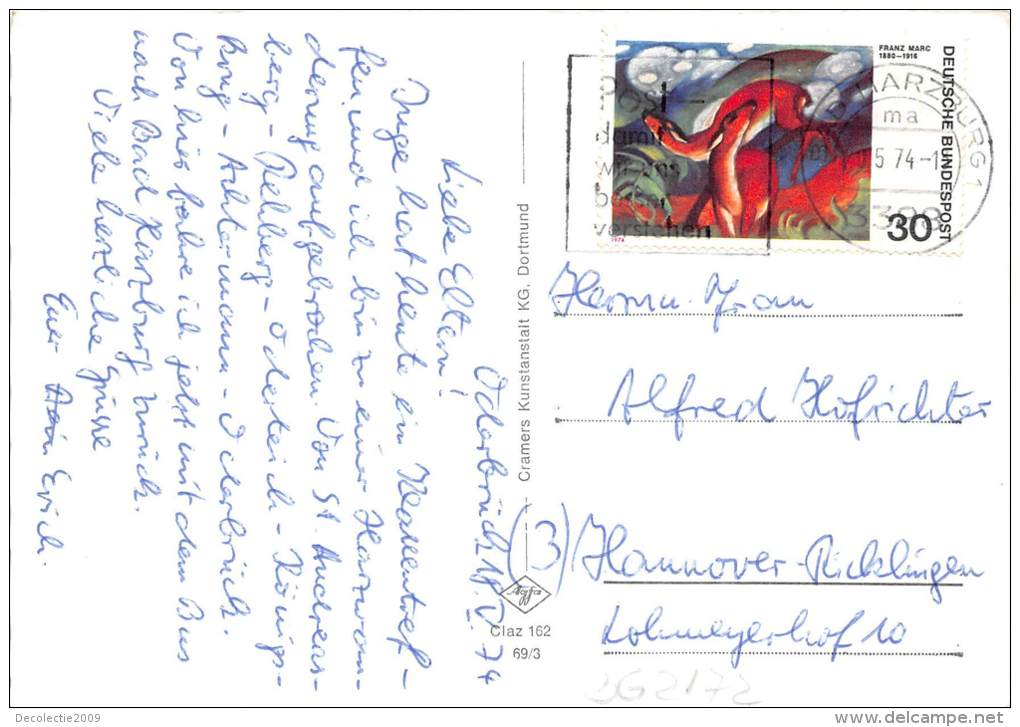 Oderbrück, 18.V.74
Liebe Eltern!
Inge hat heute ein Klassentref-
fen und ich bin zu einer Harzwan-
derung aufgebrochen. Von St. Andreas-
berg - Rehberg - Oderteich - Königs-
berg - Achtermann - Oderbrück.
Von hier fahre ich jetzt mit dem Bus
nach Bad Harzburg zurück.
Viele herzliche Grüsse
Euer Erich.
Cramers Kunstanstalt KG, Dortmund
Agfa
Claz 162
69/3
FRANZ MARC
1880-1916
DEUTSCHE BUNDESPOST
30
1974
Post
damit
wir uns
besser
verstehen
HARZBURG 1
ma
5 74-1
3388
Herrn u. Frau
Alfred Hofrichter
(3) Hannover-Ricklingen
Lohmeyerhof 10
3G2172
Decolectie2009
www.delcampe.net